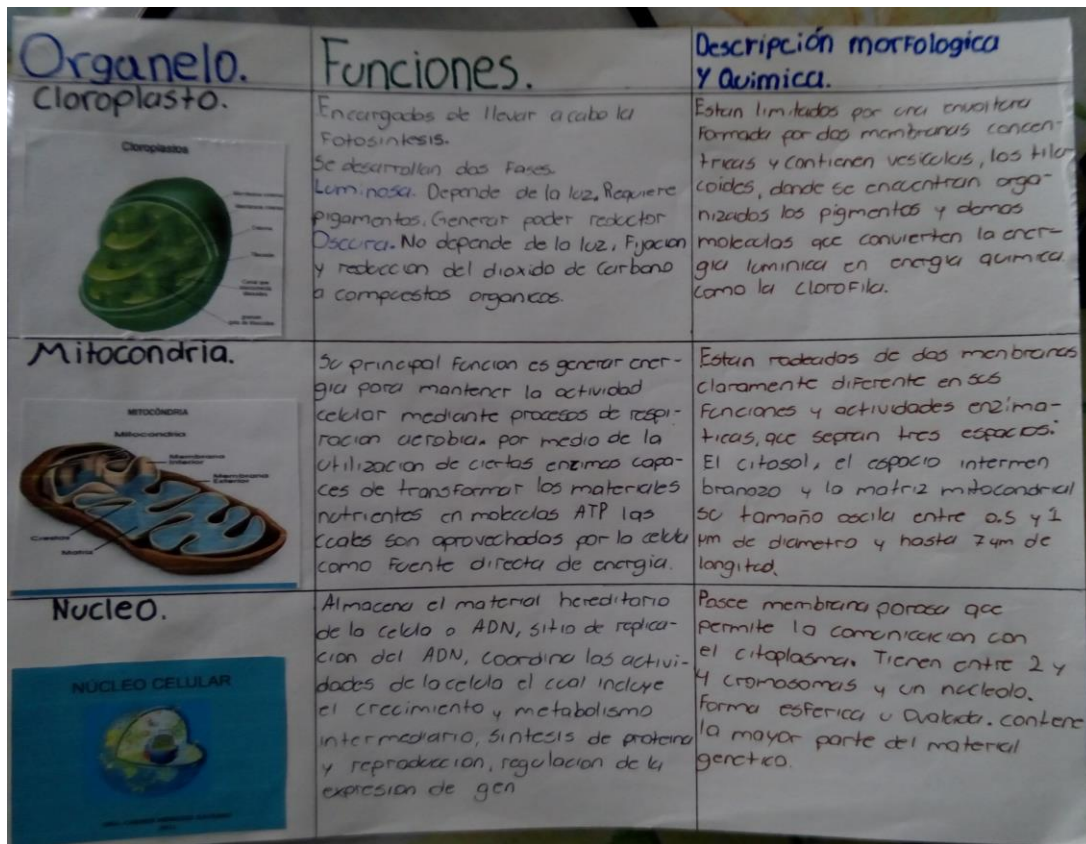 Organelo.
Funciones.
Descripción morfologica
Y Quimica.
Cloroplasto.
Cloroplastos
Encargados de llevar acabo la
Fotosintesis.
Se desarrollan dos Fases.
Luminosa. Depende de la luz, Requiere
pigamentos, Generar poder reductor
Oscura. No depende de la luz, Fijacion
y reduccion del dioxido de Carbono
a compuestos organicos.
Estan limitados por una envoltura
Formada por dos membranas concen-
tricas y contienen vesiculas, los tila
coides, donde se encuentran orga-
nizados los pigmentos y demas
moleculas que convierten la ener-
gia luminica en energia quimica
como la clorofila.
Mitocondria.
MITOCÔNDRIA
Mitocondria
Membrana
Interior
Membrana
Exterior
Crestas
Matriz
Su principal Funcion es generar ener-
gia para mantener la actividad
celular mediante procesos de respi-
racion aerobia. por medio de la
utilizacion de ciertas enzimas capa-
ces de transformar los materiales
nutrientes en moleculas ATP las
cuales son aprovechadas por la celula
como Fuente directa de energia.
Estan rodeados de dos menbranas
claramente diferente en sus
Funciones y actividades enzima-
ticas, que sepran tres espacios:
El citosol, el espacio intermen
branozo y la matriz mitocondrial
su tamaño oscila entre 0.5 y 1
µm de diametro y hasta 7µm de
longitud.
Nucleo.
NÚCLEO CELULAR
Almacena el material hereditario
de la celula o ADN, sitio de replica-
cion del ADN, coordina las activi-
dades de la celula el cual incluye
el crecimiento y metabolismo
intermediario, sintesis de proteina
y reproduccion, regulacion de la
expresion de gen
Posee membrana porosa que
permite la comunicacion con
el citoplasma. Tienen entre 2 y
4 cromosomas y un nucleolo.
Forma esferica u Ovalada. contene
la mayor parte del material
genetico.